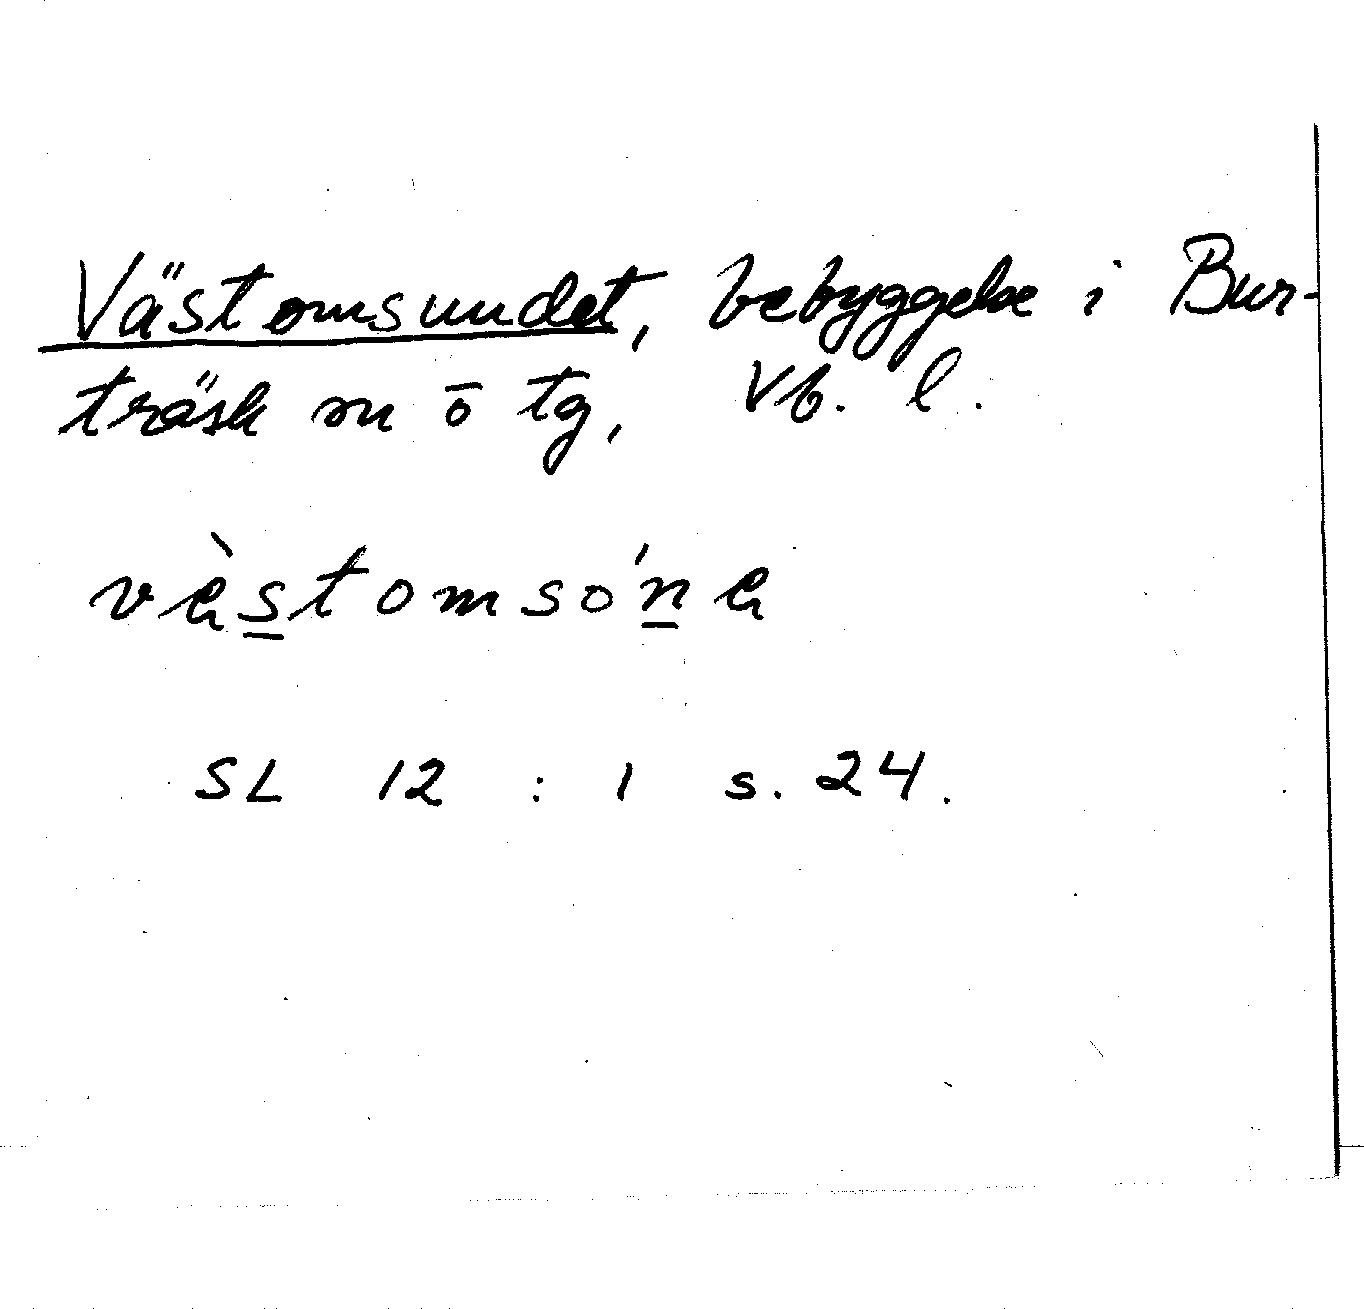 Västomsundet, bebyggelse i Bur-
träsk sn o tg, Vb. l.
vèstomsóne
SL 12 : 1 s. 24.